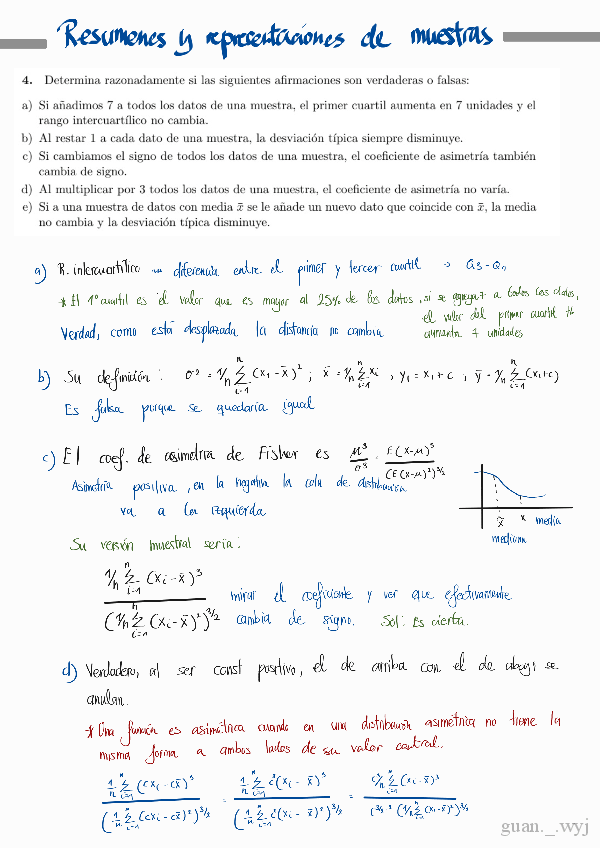 Resumenes y representaciones de muestras
4. Determina razonadamente si las siguientes afirmaciones son verdaderas o falsas:
a) Si añadimos 7 a todos los datos de una muestra, el primer cuartil aumenta en 7 unidades y el
rango intercuartílico no cambia.
b) Al restar 1 a cada dato de una muestra, la desviación típica siempre disminuye.
c) Si cambiamos el signo de todos los datos de una muestra, el coeficiente de asimetría también
cambia de signo.
d) Al multiplicar por 3 todos los datos de una muestra, el coeficiente de asimetría no varía.
e) Si a una muestra de datos con media x̄ se le añade un nuevo dato que coincide con x̄, la media
no cambia y la desviación típica disminuye.
a) R. intercuartílico → diferencia entre el primer y tercer cuartil → Q3-Q1
* El 1º cuartil es el valor que es mayor al 25% de los datos, si se agrega 7 a todos los datos,
el valor del primer cuartil
aumenta 7 unidades
Verdad, como está desplazada la distancia no cambia
b) Su definición: σ² = 1/n Σ(i=1 → n) (xi - x̄)² ; x̄ = 1/n Σ(i=1 → n) xi , yi = xi + c ; ȳ = 1/n Σ(i=1 → n) (xi+c)
Es falsa porque se quedaría igual
c) El coef. de asimetría de Fisher es μ³/σ³ = E(x-μ)³/(E(x-μ)²)^3/2
Asimetría positiva, en la negativa la cola de distribución
va a la izquierda
x̃ x̄ media
mediana
Su versión muestral sería:
1/n Σ(i=1 → n) (xi - x̄)³ / (1/n Σ(i=1 → n) (xi - x̄)²)^3/2
mirar el coeficiente y ver que efectivamente
cambia de signo. Sol: Es cierta.
d) Verdadero, al ser const positivo, el de arriba con el de abajo se
anulan.
* Una función es asimétrica cuando en una distribución asimétrica no tiene la
misma forma a ambos lados de su valor central.
1/n Σ(i=1 → n) (cxi - cx̄)³ / (1/n Σ(i=1 → n) (cxi - cx̄)²)^3/2 = 1/n Σ(i=1 → n) c³(xi - x̄)³ / (1/n Σ(i=1 → n) c²(xi - x̄)²)^3/2 = c³/n Σ(i=1 → n) (xi - x̄)³ / (c^3/2·2 (1/n Σ(i=1 → n) (xi - x̄)²)^3/2
guan._.wyj